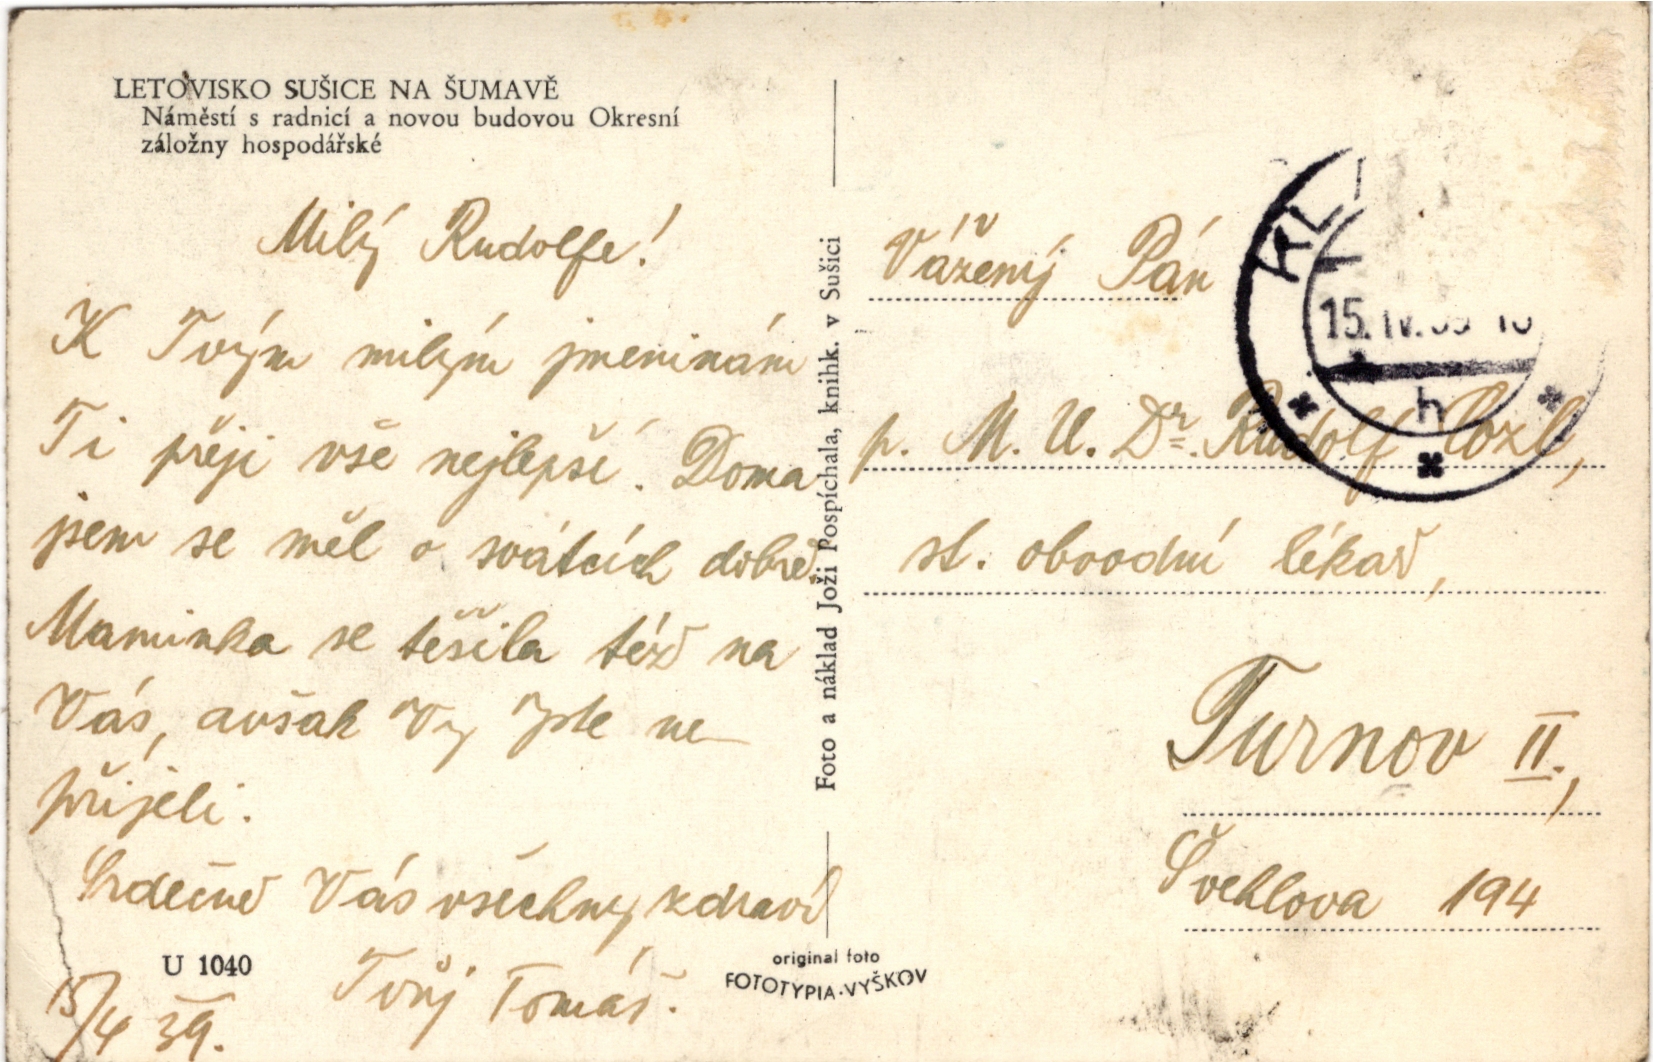 LETOVISKO SUŠICE NA ŠUMAVĚ
Náměstí s radnicí a novou budovou Okresní
záložny hospodářské
Milý Rudolfe!
K Tvým milým jmeninám
Ti přeji vše nejlepší. Doma
jsem se měl o svátcích dobře.
Maminka se těšila též na
Vás, avšak Vy jste ne-
přijeli.
Srdečně Vás všechny zdraví
Tvůj Tomáš.
15/4 39.
U 1040
Foto a náklad Joži Pospíchala, knihk. v Sušici
original foto
FOTOTYPIA-VYŠKOV
KL
15. IV. 39
h
Vážený Pán
p. M. U. Dr. Rudolf
st. obvodní lékař,
Turnov II.,
Švehlova 194